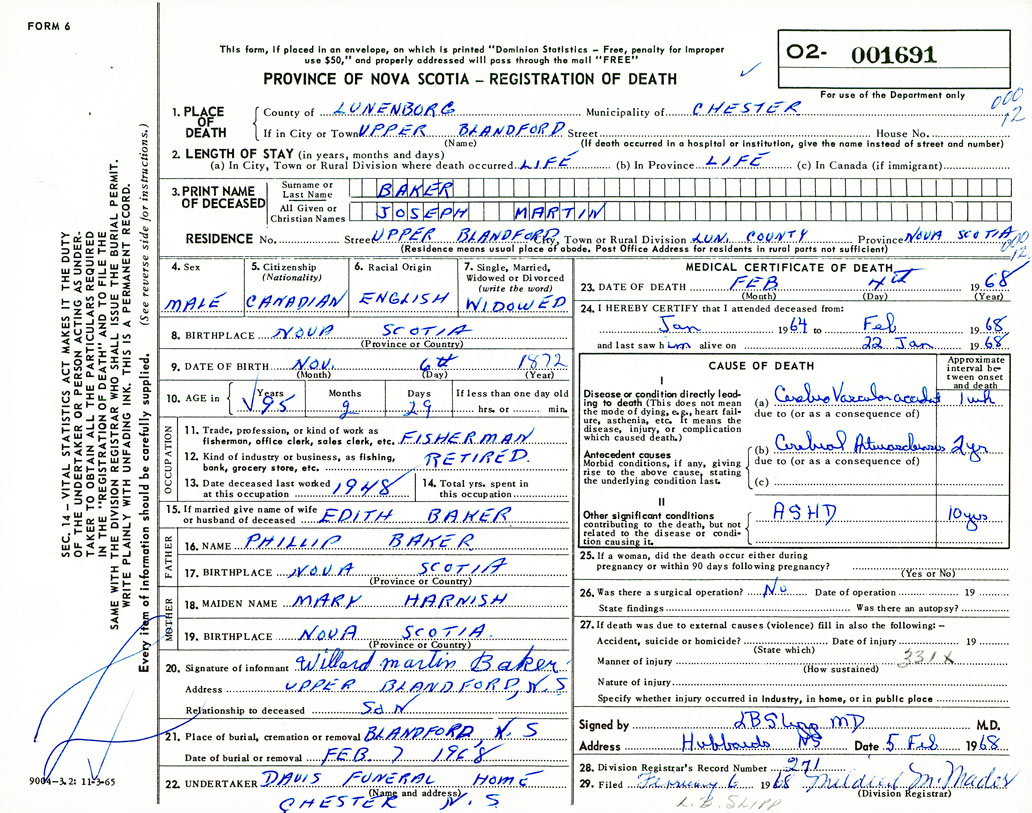 FORM 6
This form, if placed in an envelope, on which is printed "Dominion Statistics – Free, penalty for improper
use $50," and properly addressed will pass through the mail "FREE"
PROVINCE OF NOVA SCOTIA – REGISTRATION OF DEATH
O2- 001691
For use of the Department only
000
12
1. PLACE OF DEATH
County of LUNENBORG Municipality of CHESTER
If in City or Town UPPER BLANDFORD Street House No.
(Name) (If death occurred in a hospital or institution, give the name instead of street and number)
2. LENGTH OF STAY (in years, months and days)
(a) In City, Town or Rural Division where death occurred. LIFE (b) In Province LIFE (c) In Canada (if immigrant)
3. PRINT NAME OF DECEASED
Surname or Last Name BAKER
All Given or Christian Names JOSEPH MARTIN
RESIDENCE No. Street UPPER BLANDFORD City, Town or Rural Division LUN. COUNTY Province NOVA SCOTIA
(Residence means usual place of abode. Post Office Address for residents in rural parts not sufficient)
000
12
4. Sex MALE
5. Citizenship (Nationality) CANADIAN
6. Racial Origin ENGLISH
7. Single, Married, Widowed or Divorced (write the word) WIDOWED
8. BIRTHPLACE NOVA SCOTIA
(Province or Country)
9. DATE OF BIRTH NOV. 6th 1872
(Month) (Day) (Year)
10. AGE in Years 95 Months 2 Days 29 If less than one day old hrs. or min.
OCCUPATION
11. Trade, profession, or kind of work as fisherman, office clerk, sales clerk, etc. FISHERMAN
12. Kind of industry or business, as fishing, bank, grocery store, etc. RETIRED.
13. Date deceased last worked at this occupation 1948
14. Total yrs. spent in this occupation
15. If married give name of wife or husband of deceased EDITH BAKER
FATHER
16. NAME PHILLIP BAKER
17. BIRTHPLACE NOVA SCOTIA
(Province or Country)
MOTHER
18. MAIDEN NAME MARY HARNISH
19. BIRTHPLACE NOVA SCOTIA.
(Province or Country)
20. Signature of informant Willard martin Baker
Address UPPER BLANDFORD, N.S
Relationship to deceased SON
21. Place of burial, cremation or removal BLANDFORD, N.S
Date of burial or removal FEB. 7 1968
22. UNDERTAKER DAVIS FUNERAL HOME
(Name and address)
CHESTER N.S
MEDICAL CERTIFICATE OF DEATH
23. DATE OF DEATH FEB 4th 1968
(Month) (Day) (Year)
24. I HEREBY CERTIFY that I attended deceased from:
Jan 1964 to Feb 1968
and last saw him alive on 22 Jan 1968
CAUSE OF DEATH
Approximate interval between onset and death
I
Disease or condition directly leading to death (This does not mean the mode of dying, e.g., heart failure, asthenia, etc. It means the disease, injury, or complication which caused death.)
(a) Cerebro Vascular accident 1 wk
due to (or as a consequence of)
Antecedent causes
Morbid conditions, if any, giving rise to the above cause, stating the underlying condition last.
(b) Cerebral 2 yr
due to (or as a consequence of)
(c)
II
Other significant conditions contributing to the death, but not related to the disease or condition causing it.
ASHD 10 yrs
25. If a woman, did the death occur either during
pregnancy or within 90 days following pregnancy?
(Yes or No)
26. Was there a surgical operation? No Date of operation 19
State findings Was there an autopsy?
27. If death was due to external causes (violence) fill in also the following: –
Accident, suicide or homicide? Date of injury 19
(State which)
Manner of injury 331X
(How sustained)
Nature of injury
Specify whether injury occurred in industry, in home, or in public place
Signed by LB Slipp MD M.D.
Address Hubbards NS Date 5 Feb 1968
28. Division Registrar's Record Number 271
29. Filed February 6 1968 Mildred M. Mader
(Division Registrar)
L. B. SLIPP
SEC. 14 – VITAL STATISTICS ACT MAKES IT THE DUTY
OF THE UNDERTAKER OR PERSON ACTING AS UNDER-
TAKER TO OBTAIN ALL THE PARTICULARS REQUIRED
IN THE "REGISTRATION OF DEATH" AND TO FILE THE
SAME WITH THE DIVISION REGISTRAR WHO SHALL ISSUE THE BURIAL PERMIT.
WRITE PLAINLY WITH UNFADING INK. THIS IS A PERMANENT RECORD.
Every item of information should be carefully supplied. (See reverse side for instructions.)
9004-3.2: 11-3-65